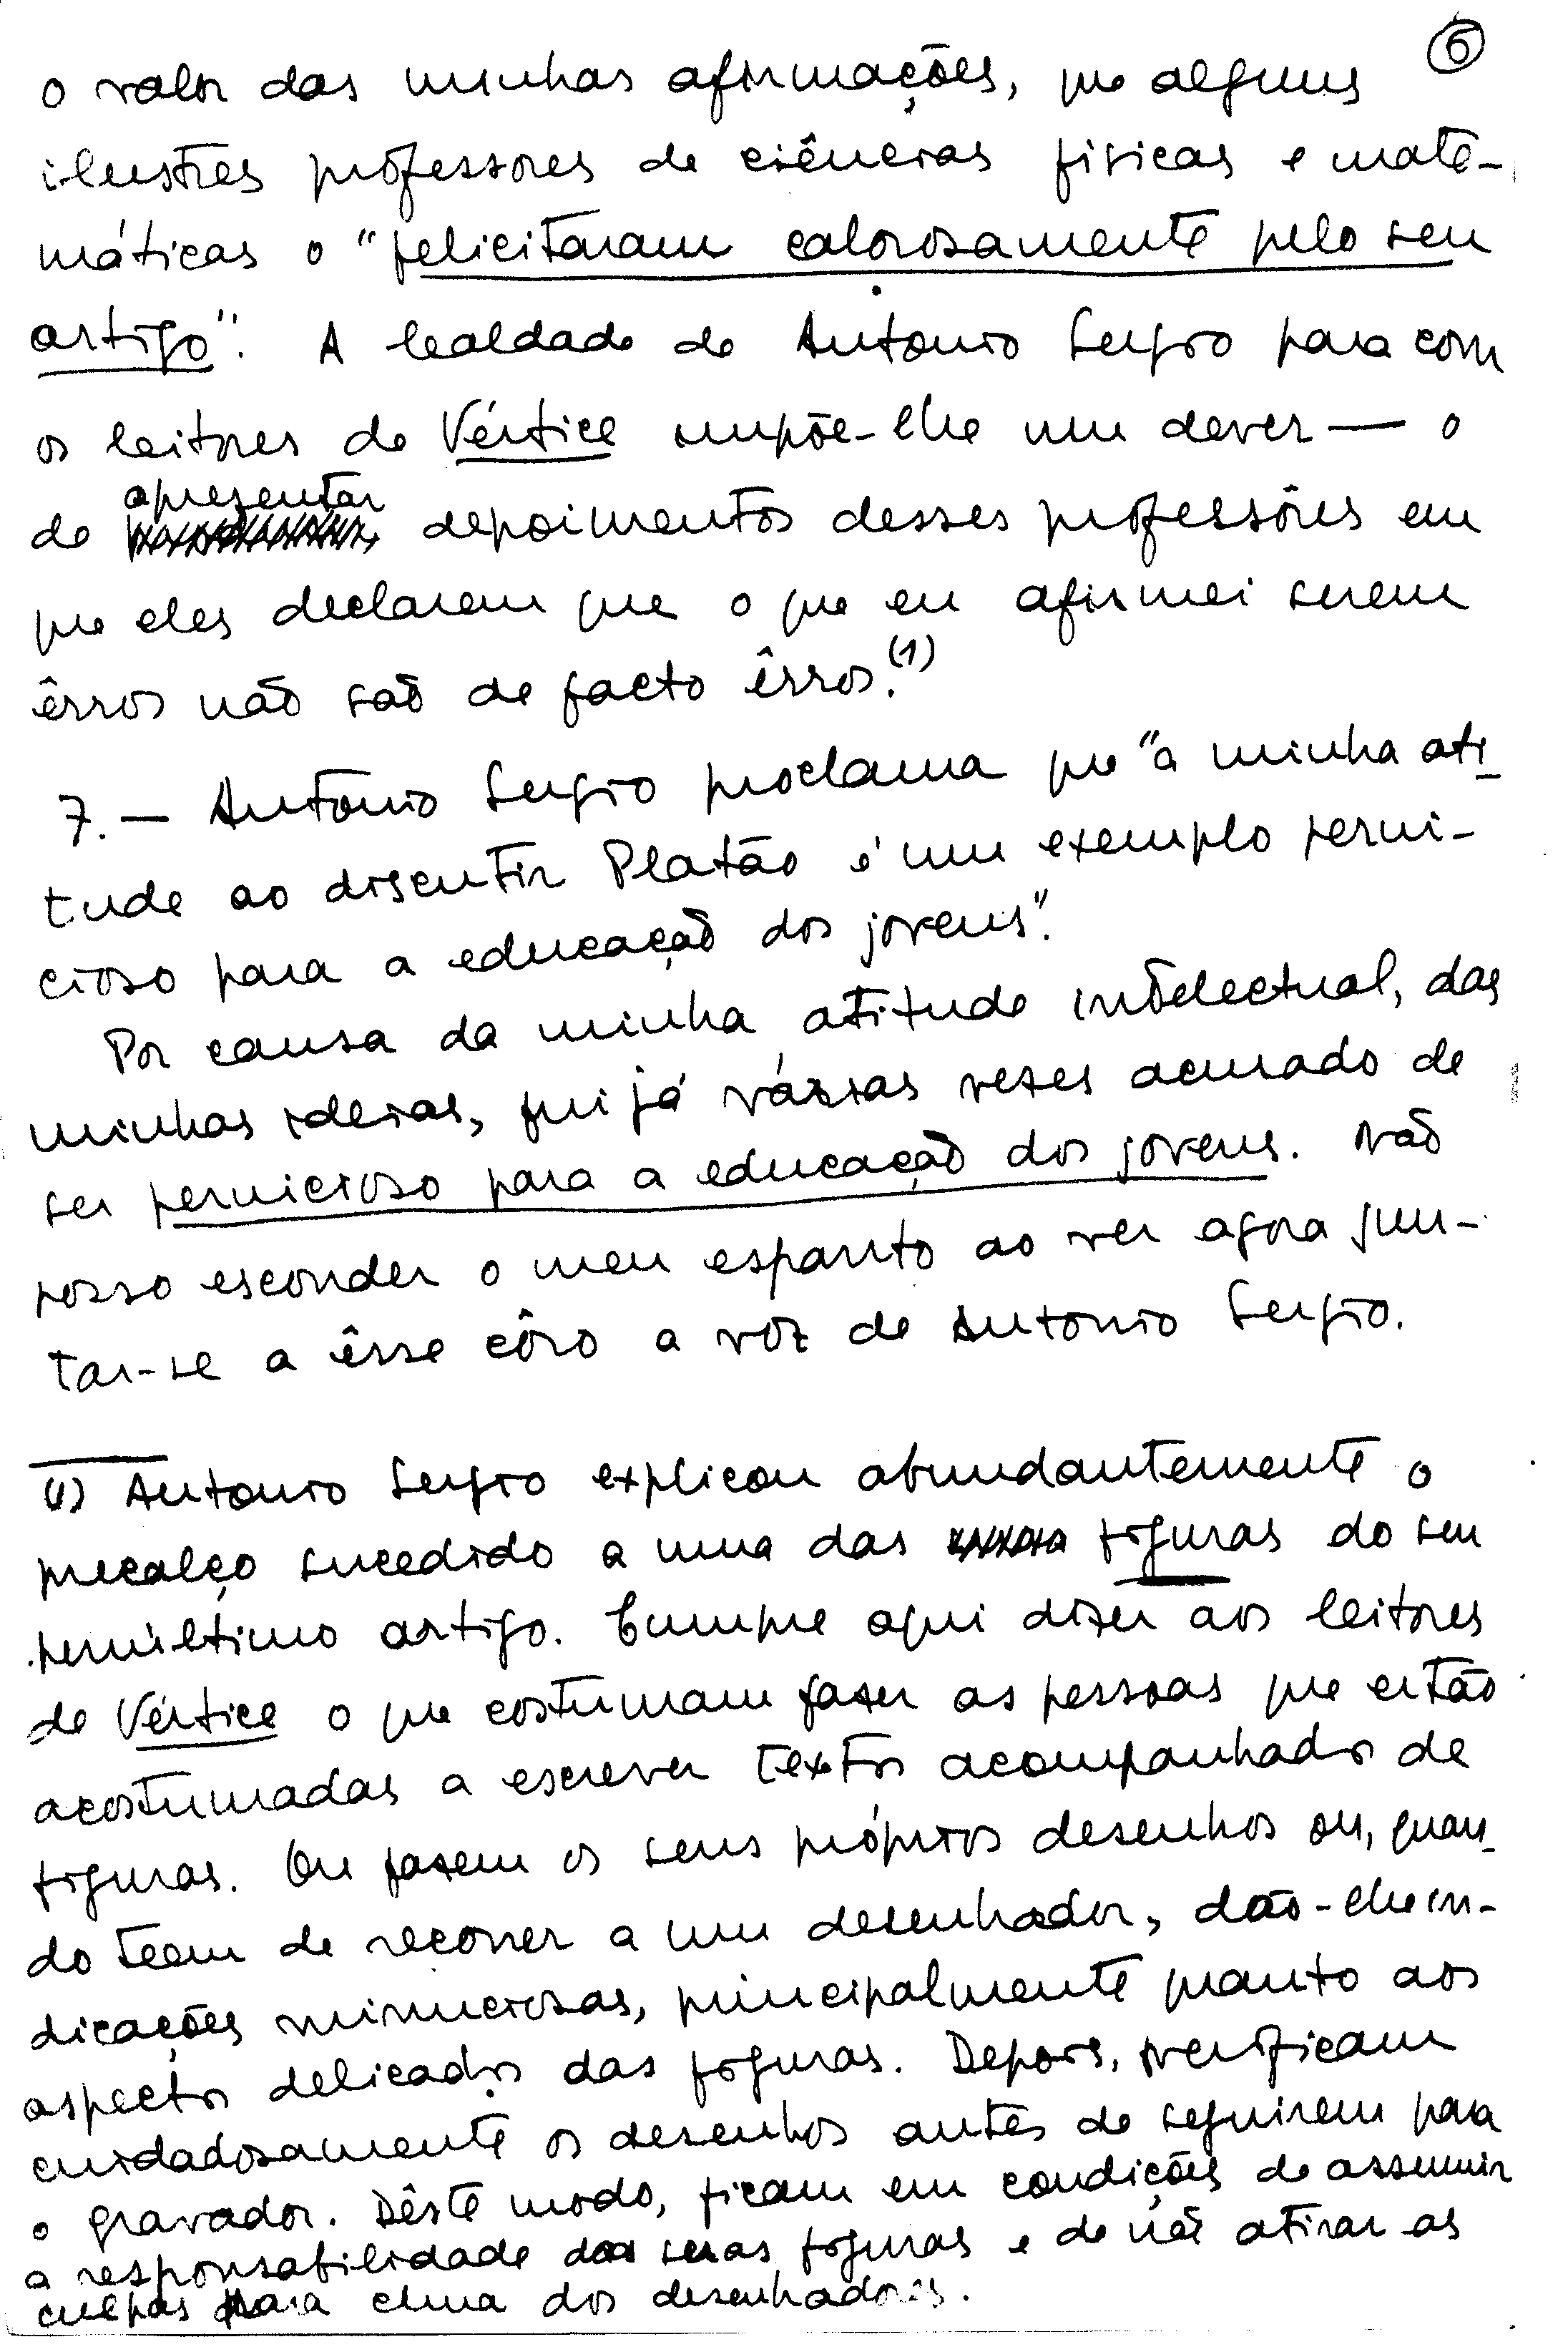 6
o valor das minhas afirmações, que alguns
ilustres professores de ciências físicas e mate-
máticas o "felicitaram calorosamente pelo seu
artigo". A lealdade de António Sergio para com
os leitores de Vértice impõe-lhe um dever — o
apresentar
de depoimentos desses professôres em
que eles declarem que o que eu afirmei serem
êrros não são de facto êrros.(1)
7. — António Sergio proclama que "a minha ati-
tude ao discutir Platão é um exemplo perni-
cioso para a educação dos jovens".
Por causa da minha atitude intelectual, das
minhas ideias, fui já várias vezes acusado de
ser pernicioso para a educação dos jovens. Não
posso esconder o meu espanto ao ver agora jun-
tar-se a êsse côro a voz de Antonio Sergio.
(1) Antonio Sergio explicou abundantemente o
precalço sucedido a uma das figuras do seu
penúltimo artigo. Cumpre aqui dizer aos leitores
de Vértice o que costumam fazer as pessoas que estão
acostumadas a escrever textos acompanhados de
figuras. Ou fazem os seus próprios desenhos ou, quan-
do teem de recorrer a um desenhador, dão-lhe in-
dicações minuciosas, principalmente quanto aos
aspectos delicados das figuras. Depois, verificam
cuidadosamente os desenhos antes de seguirem para
o gravador. Dêste modo, ficam em condições de assumir
a responsabilidade das suas figuras e de não atirar as
culpas para cima dos desenhadores.